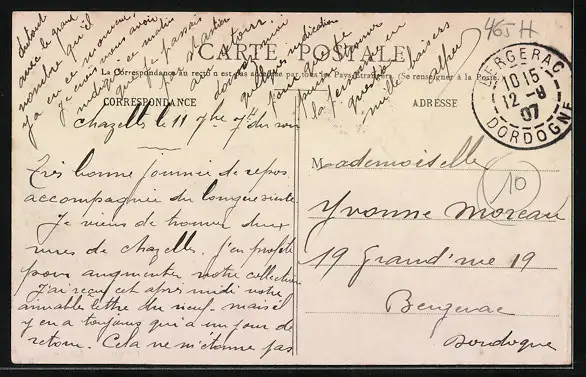 CARTE POSTALE
La Correspondance au recto n'est pas acceptée par tous les Pays Etrangers (Se renseigner à la Poste)
CORRESPONDANCE
ADRESSE
465 H
BERGERAC
10 15
12 -9
07
DORDOGNE
10
Chazelles le 11 7bre 7h du soir
Très bonne journée de repos
accompagnée du
Je viens de trouver deux
vues de chazelles. J'en profite
pour augmenter notre collection
J'ai reçu cet après midi votre
aimable lettre du neuf. mais il
y en a toujours qui a un jour de
retour. Cela ne m'étonne pas
surtout
avec le grand
nombre qu'il
y a en ce moment,
Je vous avais
indiqué ce matin
que je passais
par
au retour.
donnez moi
quelques indication
pour
pour
la
mille baisers
Mademoiselle
Yvonne Moreau
19 Grand'rue 19
Bergerac
Dordogne